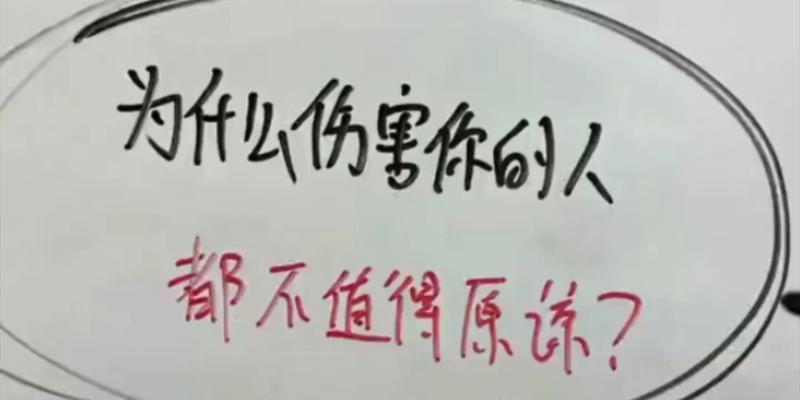 为什么伤害你的人
都不值得原谅?